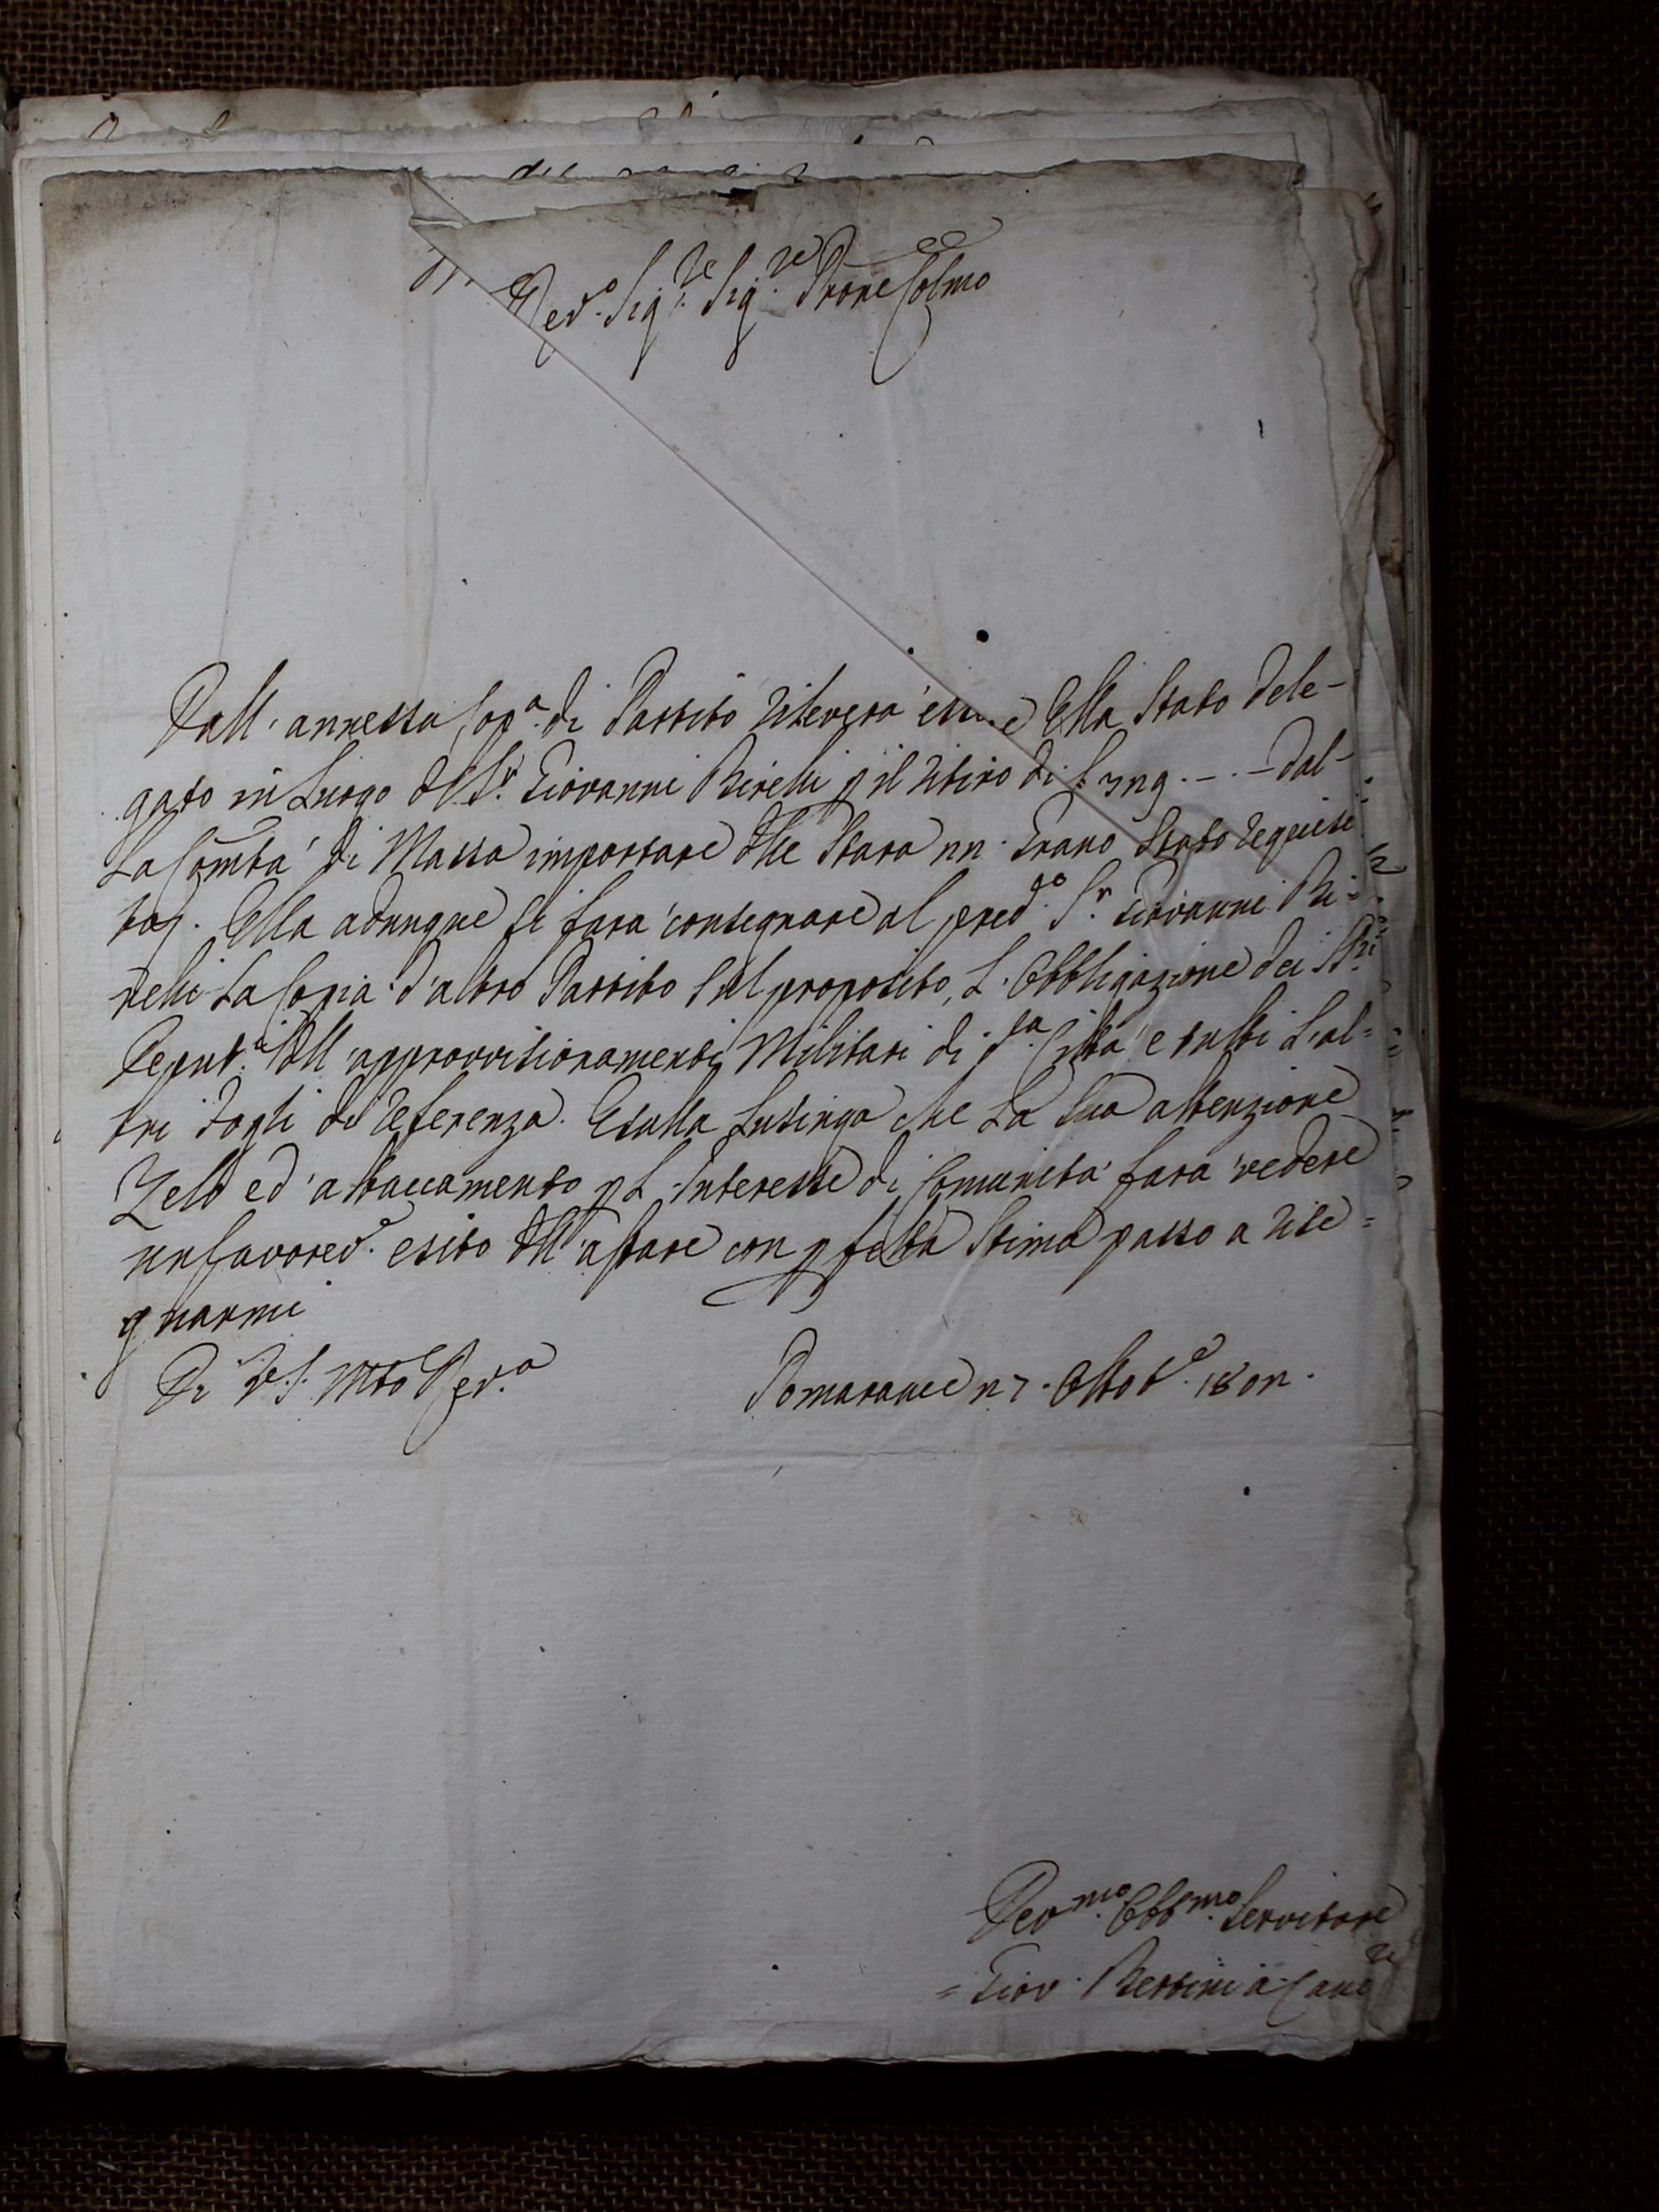 Rev.do Sig.re Sig.re Prone Colmo
Dall'annessa Cop.a di Partito rileverà essere Ella Stato dele-
gato in Luogo del S.r Giovanni Birelli p il ritiro di £ dal-
La Comtà di Massa importare delle Stara Grano Stato requisi
to. Ella adunque si farà consegnare al pred.o S.r Giovanni Bi=
relli La Copia d'altro Partito sul proposito, L'Obbligazione dei SS.ri
Deput.i all'approvvisionamenti Militari di d.a Città e tutti L'al=
tri Fogli di referenza. E sulla Lusinga che La sua attenzione
Zelo ed attaccamento p L'Interesse di Comunità farà vedere
un favorev.e esito dell'affare con pfetta Stima passo a rase=
gnarmi
Di V.S. Mto Rev.a
Pomarance Ottob.e
Dev.mo Obb.mo Servitore
= Giov. Bettini a Canc.re